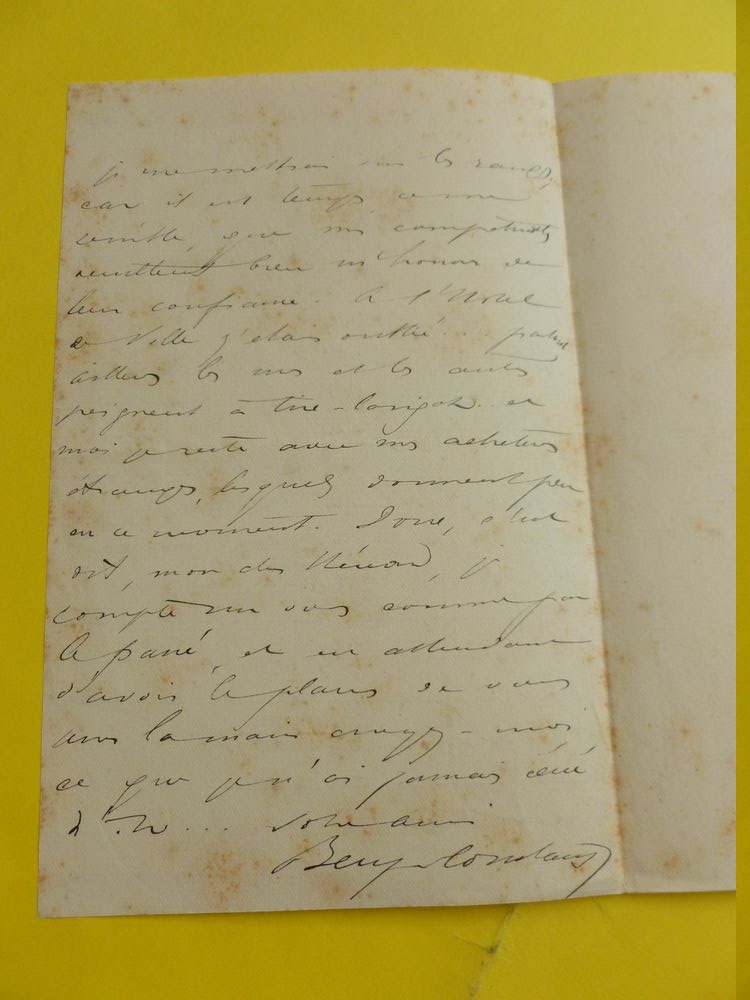 je me mettrai sur les rangs,
car il est temps ce me
semble, que mes compatriotes
veuillent bien m'honorer de
leur confiance. À l'Hotel
de Ville j'étais oublié... partout
ailleurs les uns et les autres
peignent à tire-larigot et
moi je reste avec mes acheteurs
étrangers, lesquels donnent peu
en ce moment. Donc, c'est
dit, mon cher, je
compte sur vous comme par
le passé, et en attendant
d'avoir le plaisir de vous
serrer la main croyez-moi
ce que je n'ai jamais cessé
d'être... votre ami
Benj-Constant